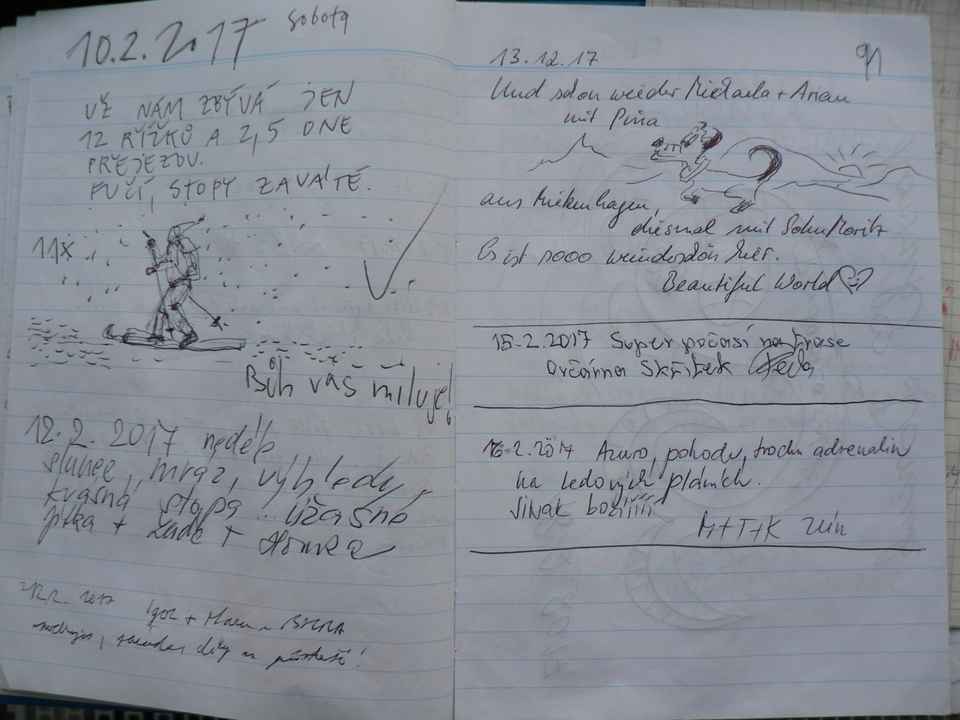 10.2.2017 Sobota
UŽ NÁM ZBÝVÁ JEN
12 ŘÍŽKŮ A 2,5 DNE
PŘEJEZDU.
FUČÍ, STOPY ZAVÁTÉ.
11x
Bůh vás miluje!
12.2.2017 neděle
slunce, mraz, výhledy,
krásná stopa... úžasné
Jitka + +
2017 Igor +
91
13.12.17
Und schon wieder Michaela + Arian
mit Pina
aus
diesmal mit Sohn Moritz
Es ist sooo wunderschön hier.
Beautiful World
15.2.2017 Super počasí na trase
Ovčárna Skřítek
16.2.2017 Azuro, pohoda, trochu adrenalin
na ledových pláních.
Jinak božííííí
M+T+K Zlín